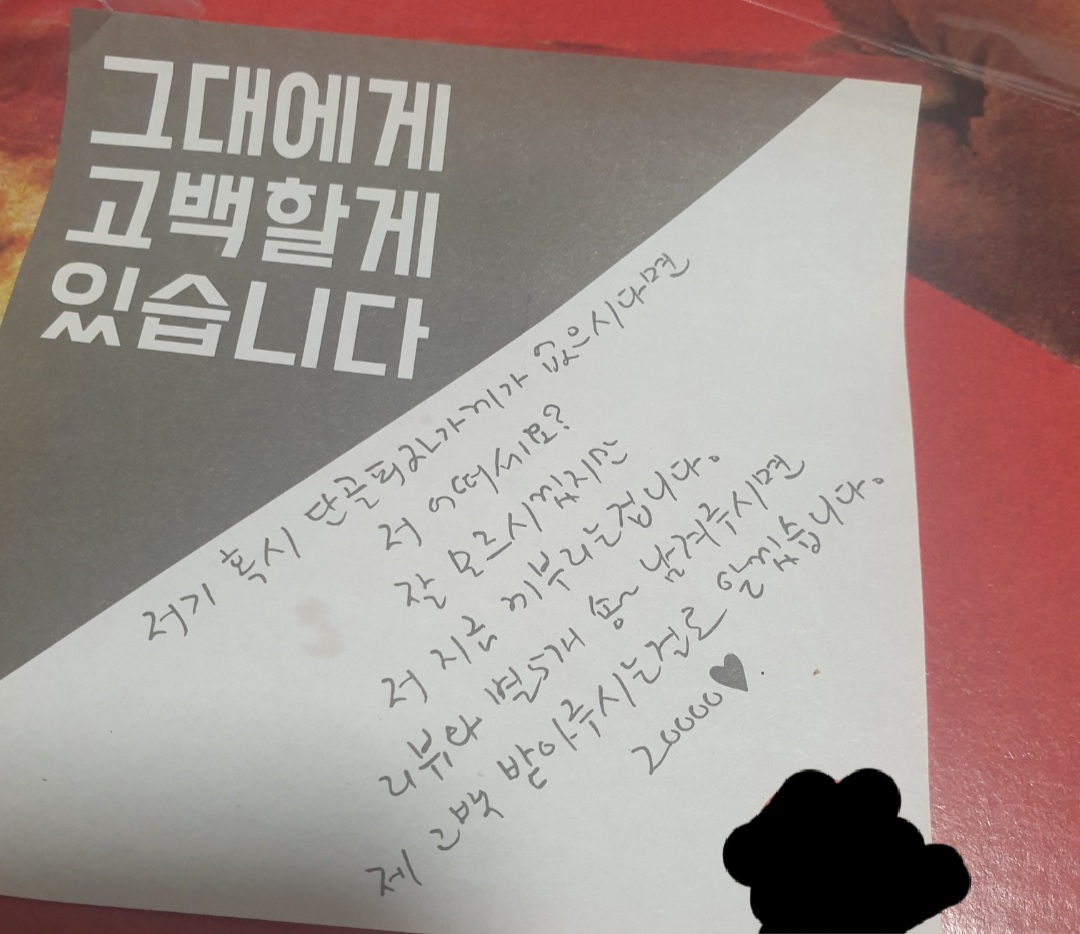 그대에게
고백할게
있습니다
저기 혹시 단골피자가게가 없으시다면
저 어떠세요?
잘 모르시겠지만
저 지금 끼부리는겁니다.
리뷰와 별5개 쏭~ 남겨주시면
제 고백 받아주시는걸로 알겠습니다.
20000♥